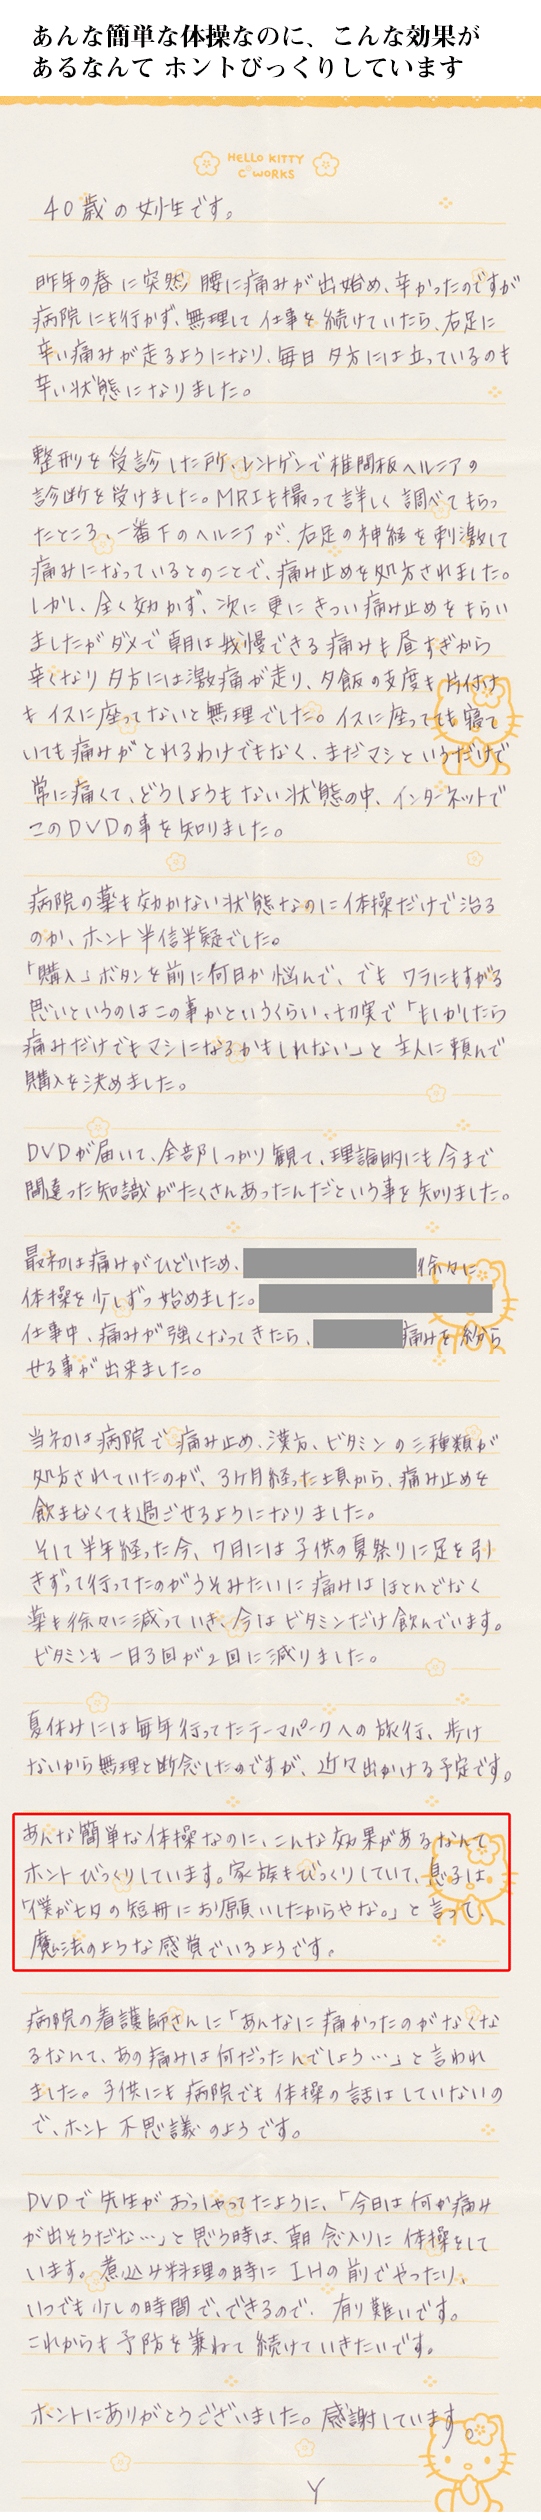 あんな簡単な体操なのに、こんな効果が
あるなんて ホントびっくりしています
HELLO KITTY
C WORKS
40歳の女性です。
昨年の春に突然 腰に痛みが出始め、辛かったのですが
病院にも行かず、無理して仕事を続けていたら、右足に
辛い痛みが走るようになり、毎日夕方には立っているのも
辛い状態になりました。
整形を受診した所、レントゲンで椎間板ヘルニアの
診断を受けました。MRIも撮って詳しく調べてもらっ
たところ、一番下のヘルニアが、右足の神経を刺激して
痛みになっているとのことで、痛み止めを処方されました。
しかし、全く効かず、次に更にきつい痛み止めをもらい
ましたがダメで朝は我慢できる痛みも昼すぎから
辛くなり夕方には激痛が走り、夕飯の支度も片付け
もイスに座ってないと無理でした。イスに座ってても寝て
いても痛みがとれるわけでもなく、まだマシというだけで
常に痛くて、どうしようもない状態の中、インターネットで
このDVDの事を知りました。
病院の薬も効かない状態なのに体操だけで治る
のか、ホント半信半疑でした。
「購入」ボタンを前に何日か悩んで、でもワラにもすがる
思いというのはこの事かというくらい、切実で「もしかしたら
痛みだけでもマシになるかもしれない」と主人に頼んで
購入を決めました。
DVDが届いて、全部しっかり観て、理論的にも今まで
間違った知識がたくさんあったんだという事を知りました。
最初は痛みがひどいため、徐々に
体操を少しずつ始めました。
仕事中、痛みが強くなってきたら、痛みを紛ら
せる事が出来ました。
当初は病院で痛み止め、漢方、ビタミンの三種類が
処方されていたのが、3ヶ月経った頃から、痛み止めを
飲まなくても過ごせるようになりました。
そして半年経った今、7月には子供の夏祭りに足を引
きずって行ってたのがうそみたいに痛みはほとんどなく
薬も徐々に減っていき、今はビタミンだけ飲んでいます。
ビタミンも一日3回が2回に減りました。
夏休みには毎年行ってたテーマパークへの旅行、歩け
ないから無理と断念したのですが、近々出かける予定です。
あんな簡単な体操なのに、こんな効果があるなんて
ホントびっくりしています。家族もびっくりしていて、息子は
「僕が七夕の短冊にお願いしたからやな。」と言って、
魔法のような感覚でいるようです。
病院の看護師さんに「あんなに痛かったのがなくな
るなんて、あの痛みは何だったんでしょう…」と言われ
ました。子供にも病院でも体操の話はしていないの
で、ホント不思議のようです。
DVDで先生がおっしゃってたように、「今日は何か痛み
が出そうだな…」と思う時は、朝念入りに体操をして
います。煮込み料理の時にIHの前でやったり、
いつでも少しの時間で、できるので、有り難いです。
これからも予防を兼ねて続けていきたいです。
ホントにありがとうございました。感謝しています。
Y